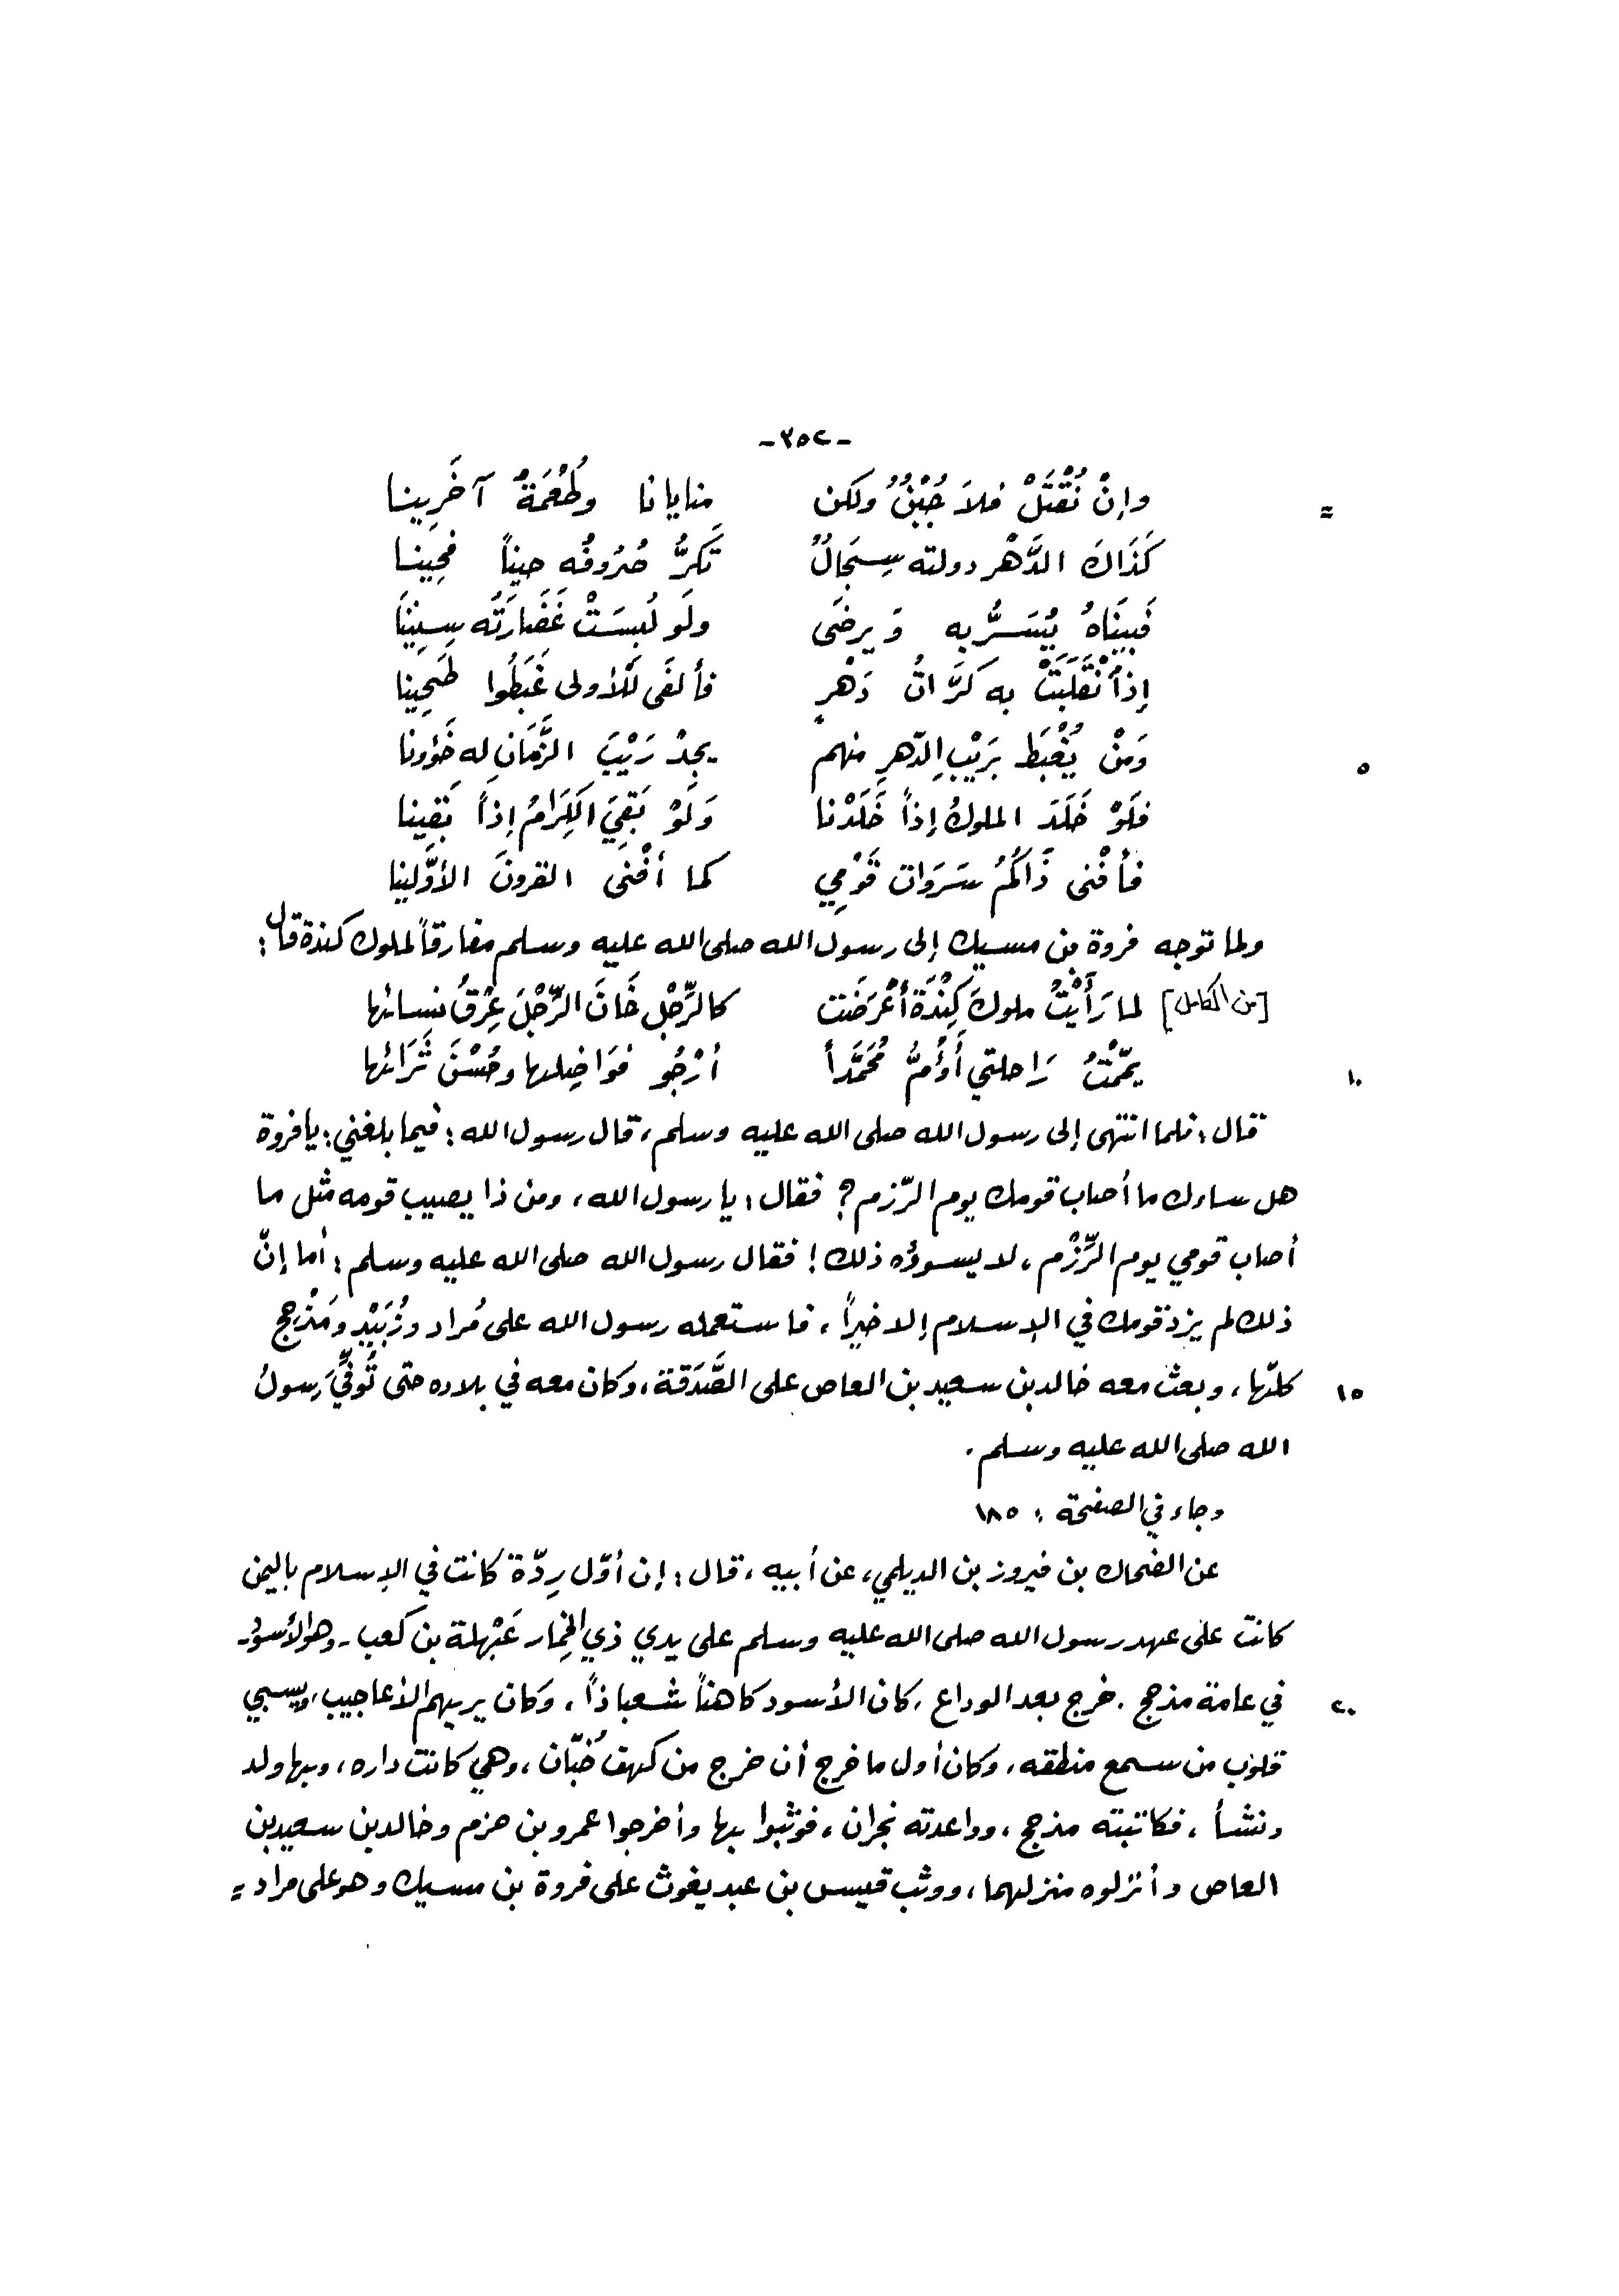 -٣٥٢-
= وإنْ نُقْتَلْ فلاَ جُبْنٌ ولكن منايانا وطُعْمَةُ آخَرِينا
كَذَاكَ الدَّهْر دولته سِجَالٌ تَكرُّ صُرُوفُه حيناً فحِينا
فَبينَاهُ يُسَرُّ به وَ يرضَى ولَو لُبسَتْ غَضَارَتُه سِنِينَا
إذاْنْقَلَبَتْ به كَرَّاتُ دَهْرٍ فأَلفَى لَلأولى غَبَطُوا طَحِينا
٥ وَمَنْ يُغْبَط بَريْبِ الدّهرِ منهم يجِدْ رَيْبَ الزَّمَانِ له خَؤونا
فلَوْ خَلَدَ الملوكُ إذاً خَلَدْنا وَلَوْ بَقِيَ الكِرَامُ إذاً بَقِينا
فأفْنى ذَاكُمُ سَرَوَات قَوْمِي كما أفْنى القرونَ الأوّلينا
ولما توجه فروة بن مسيك إلى رسول الله صلى الله عليه وسلم مفارقاً لملوك كندة قال:
[من الكامل] لما رَأَيْتُ ملوكَ كِنْدَةَ أعْرَضَت كالرِّجْلِ خَانَ الرِّجْلَ عِرْقُ نسائها
١٠ يمّمْتُ رَاحلتي أَؤُمُّ مُحَمَّداً أرْجُو فوَاضِلها وحُسْنَ ثَرَائها
قال: فلما انتهى إلى رسول الله صلى الله عليه وسلم، قال رسول الله: فيما بلغني: يا فروة
هل ساءك ما أصاب قومك يوم الرّزم؟ فقال: يا رسول الله، ومن ذا يصيب قومه مثل ما
أصاب قومي يوم الرِّزْم، لا يسوؤه ذلك! فقال رسول الله صلى الله عليه وسلم: أما إنّ
ذلك لم يزد قومك في الإسلام إلا خيراً، فاستعمله رسول الله على مُراد وزُبَيْد ومَذْحِج
١٥ كلّها، وبعث معه خالد بن سعيد بن العاص على الصَّدَقة، وكان معه في بلاده حتى تُوفِّيَ رسولُ
الله صلى الله عليه وسلم.
وجاء في الصفحة: ١٨٥
عن الضحاك بن فيروز بن الديلمي، عن أبيه، قال: إن أوّل رِدّة كانت في الإسلام باليمن
كانت على عهد رسول الله صلى الله عليه وسلم على يدي ذي الخِمار عَبْهلة بن كعب - وهو الأسود -
٢٠ في عامة مذحج. خرج بعد الوداع، كان الأسود كاهناً شعباذاً، وكان يريهم الأعاجيب، ويسبي
قلوب من سمع منطقه، وكان أول ما خرج أن خرج من كهف خُبّان، وهي كانت داره، وبها ولد
ونشأ، فكاتبته مذحج، وواعدته نجران، فوثبوا بها وأخرجوا عمرو بن حزم وخالد بن سعيد بن
العاص وأنزلوه منزلهما، ووثب قيس بن عبد يغوث على فروة بن مسيك وهو على مراد =